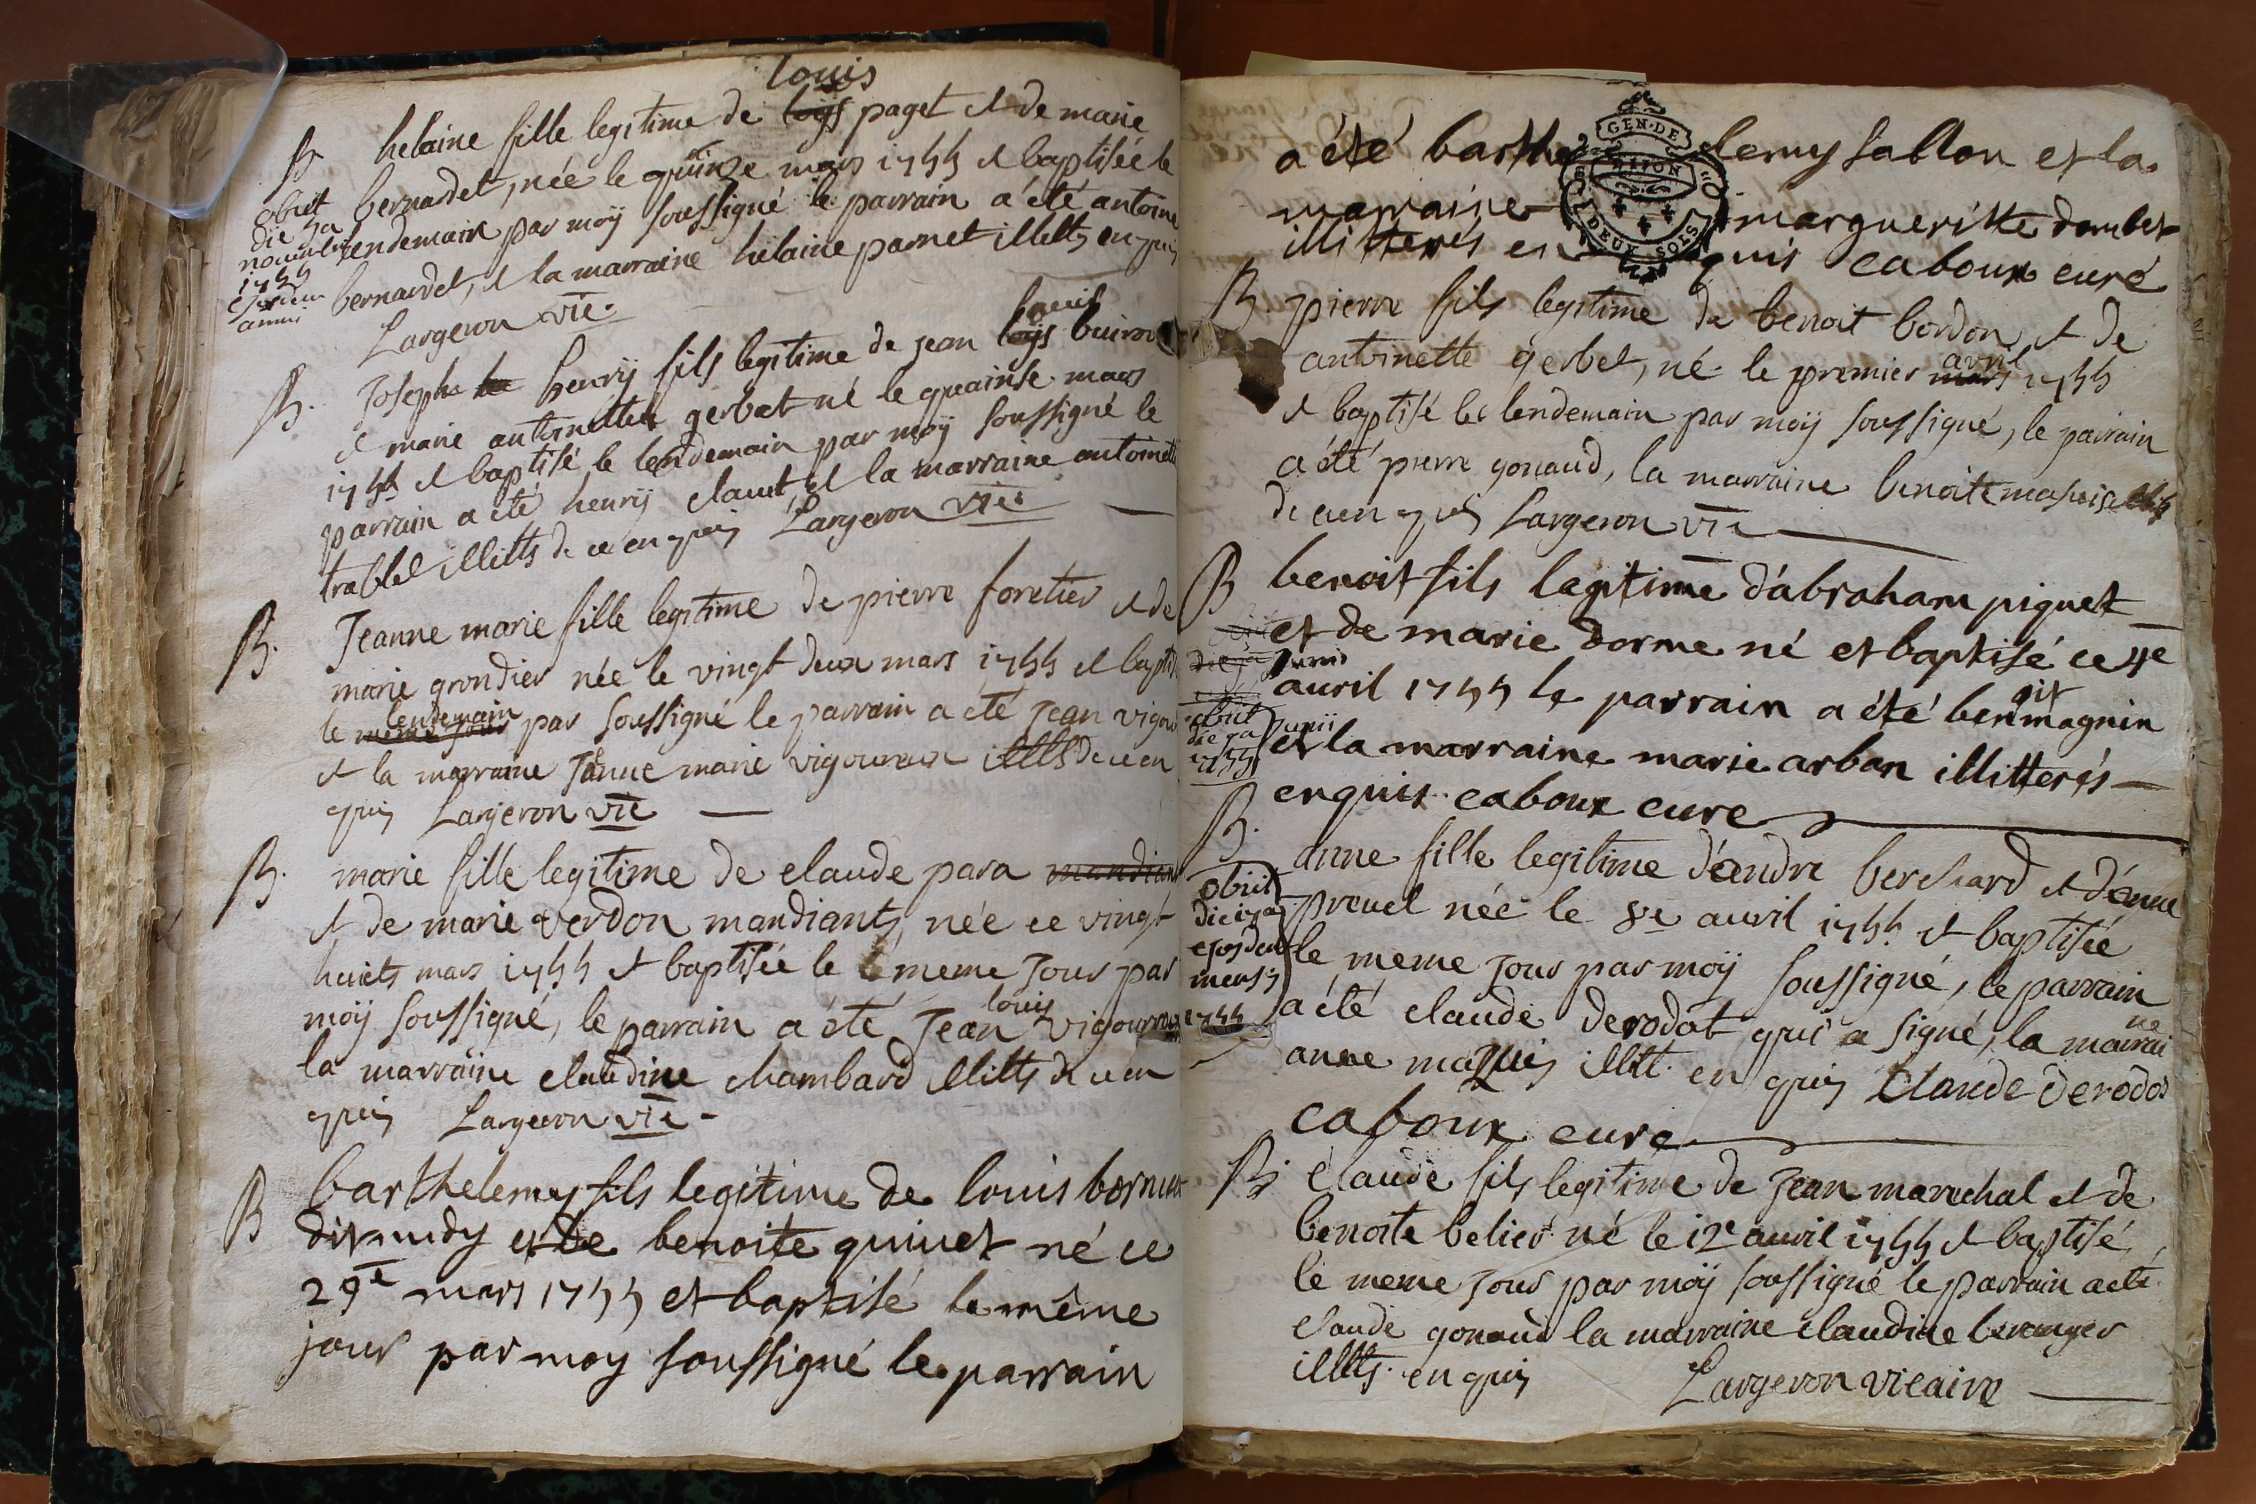 louis
B helaine fille legitime de loys paget et de marie
bernardet, née le quinze mars 1755 et baptisée le
lendemain par moÿ soussigné le parrain a été antoine
bernardet, et la marraine helaine parnet illitts enquis
Largeron vic.
obiit
die
novembris
1755
ejusdem
anni
louis
B. Joseph henrÿ fils legitime de jean loys buiron
et marie antoinette gerbet né le quainse mars
1755 et baptisé le lendemain par moÿ soussigné le
parrain a été henrÿ clauet, et la marraine antoinette
trablet illitts de ce enquis Largeron vic.
B. Jeanne marie fille legitime de pierre foretier et de
marie grondier née le vingt deux mars 1755 et baptisée
lendemain
le meme jour par soussigné le parrain a été jean vigou
et la marraine Jeanne marie vigoureux illitts de ce en
quis Largeron vic
B. marie fille legitime de claude para mandiant
et de marie verdon mandiants, née ce vingt
huicts mars 1755 et baptisée le meme jour par
louis
moÿ soussigné, le parrain a été Jean vigoureux
la marraine claudine chambard illitts de ce en
quis Largeron vic
B barthelemy fils legitime de louis bornu
dit mdy et de benoite quinet né ce
29e mars 1755 et baptisé le même
jour par moy soussigné le parrain
GEN. DE
DEUX SOLS
a été barthelemy sallon et la
marraine margueritte dombet
illitterés enquis caboux curé
B. pierre fils legitime de benoit bordon, et de
avril
antoinette gerbet, né le premier mars 1755
et baptisé le lendemain par moÿ soussigné, le parrain
a été pierre gonaud, la marraine benoite
de ce en quis Largeron vic
B benoit fils legitime d'abraham piguet
et de marie dorme né et baptisé ce 4e
avril 1755 le parrain a été benoit magnin
et la marraine marie arban illitterés
enquis caboux curé
obiit
die
junii
1755
B. anne fille legitime d'andre berchard et d'anne
preuel née le 8e auril 1755 et baptisée
le meme jour par moÿ soussigné, le parrain
a été claude derodat qui a signé, la marraine
anne maquis illitt. en quis Claude Derodas
caboux curé
obiit
die 17a
ejusdem
mensis
1755
B. claude fils legitime de Jean marechal et de
benoite belier né le 12e auril 1755 et baptisé
le meme jour par moÿ soussigné le parrain a été
claude gonaud la marraine claudine beranger
illitts. en quis Largeron vicaire